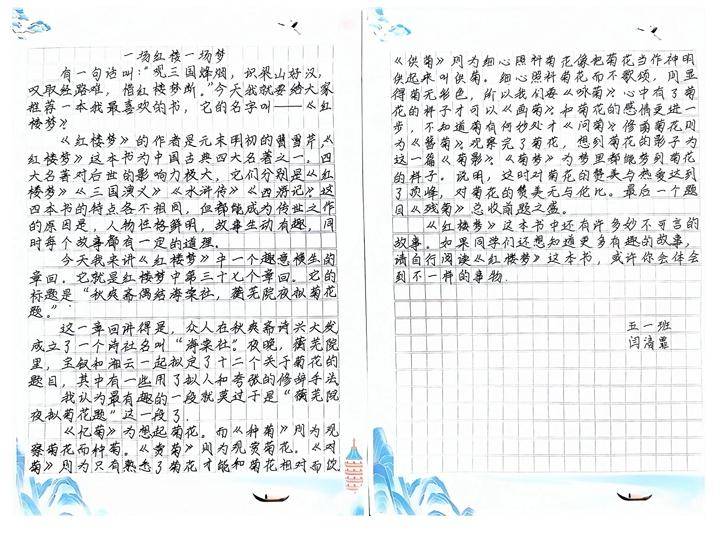 一场红楼一场梦
有一句话叫：“观三国烽烟，识梁山好汉，
叹取经路难，惜红楼梦断。”今天我就要给大家
推荐一本我最喜欢的书，它的名字叫——《红
楼梦》。
《红楼梦》的作者是元末明初的曹雪芹，《
红楼梦》这本书为中国古典四大名著之一。四
大名著对后世的影响力极大，它们分别是《红
楼梦》《三国演义》《水浒传》《西游记》。这
四本书的特点各不相同，但都能成为传世之作
的原因是，人物性格鲜明，故事生动有趣，同
时每个故事都有一定的道理。
今天我来讲《红楼梦》中一个趣意横生的
章回。它就是红楼梦中第三十七个章回。它的
标题是“秋爽斋偶结海棠社，蘅芜院夜拟菊花
题。”
这一章回讲得是，众人在秋爽斋诗兴大发
成立了一个诗社名叫“海棠社”。夜晚，蘅芜院
里，宝钗和湘云一起拟定了十二个关于菊花的
题目，其中有一些用了拟人和夸张的修辞手法
我认为最有趣的一段就莫过于是“蘅芜院
夜拟菊花题”这一段了。
《忆菊》为想起菊花。而《种菊》则为观
察菊花而种菊。《赏菊》则为观赏菊花。《对
菊》则为只有熟悉了菊花才能和菊花相对而饮
《供菊》则为细心照料菊花像把菊花当作神明
供起来叫供菊。细心照料菊花而不歌颂，则显
得菊无彩色，所以我们要《咏菊》。心中有了菊
花的样子才可以《画菊》。和菊花的感情更进一
步，不知道菊有何妙处才《问菊》。修菊菊花则
为《簪菊》。观察完了菊花，想到菊花的影子为
这一篇《菊影》。《菊梦》为梦里都能梦到菊花
的样子。说明，这时对菊花的赞美与热爱达到
了顶峰，对菊花的赞美无与伦比。最后一个题
目《残菊》总收前题之盛。
《红楼梦》这本书中还有许多妙不可言的
故事。如果同学们还想知道更多有趣的故事，
请自行阅读《红楼梦》这本书，或许你会体会
到不一样的事物。
五一班
闫清